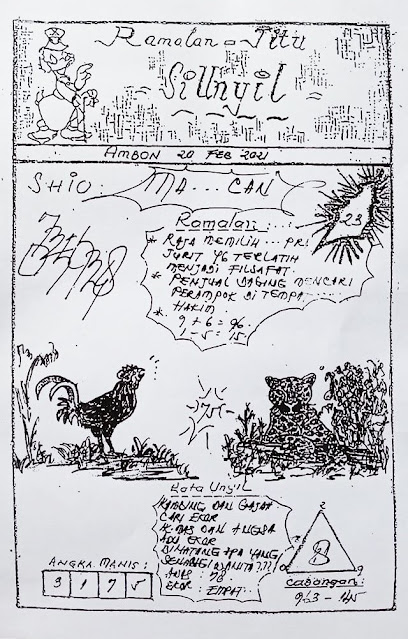 Ramalan = Jitu
Si Unyil
AMBON 20 FEB 2021
SHIO: MA... CAN
23
Ramalan:
* RAJA MEMILIH... PRA
JURIT YG TERLATIH
MENJADI FILSAFAT.
* PENJUAL DAGING MENCARI
PERAMPOK DI TEMPAT
* HAKIM
9 + 6 = 96.
1 - 5 = 15.
75
Kata Unyil
KAMBING DAN GAJAH
CARI EKOR
DAN ANGSA
ADU EKOR
BINATANG APA YANG
SENANGI WANITA???
: 78
EKOR : EMPAT
ANGKA MANIS:
3 1 7 5
2
8
9
Cabangan:
963 - 45